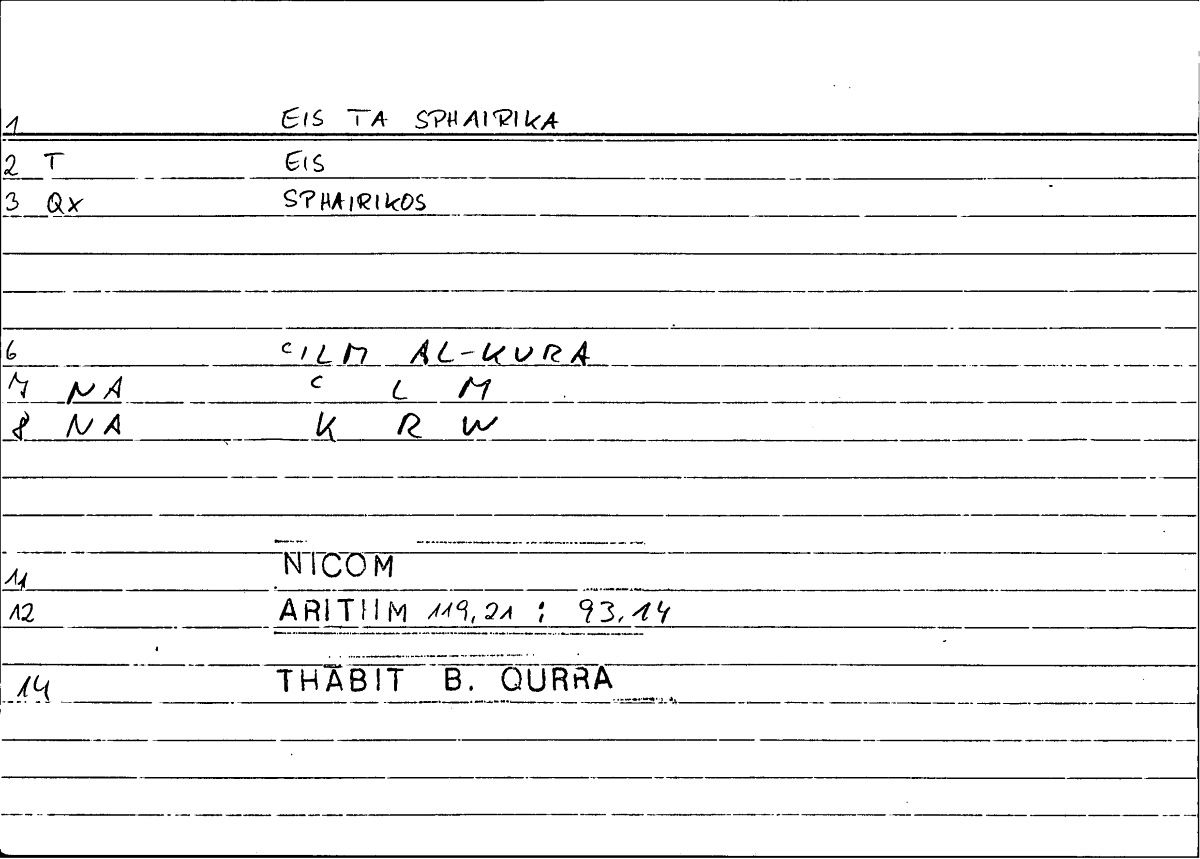 1 EIS TA SPHAIRIKA
2 T EIS
3 Qx SPHAIRIKOS
6 cILM AL-KURA
7 NA c L M
8 NA K R W
11 NICOM
12 ARITHM 119,21 : 93,14
14 THĀBIT B. QURRA